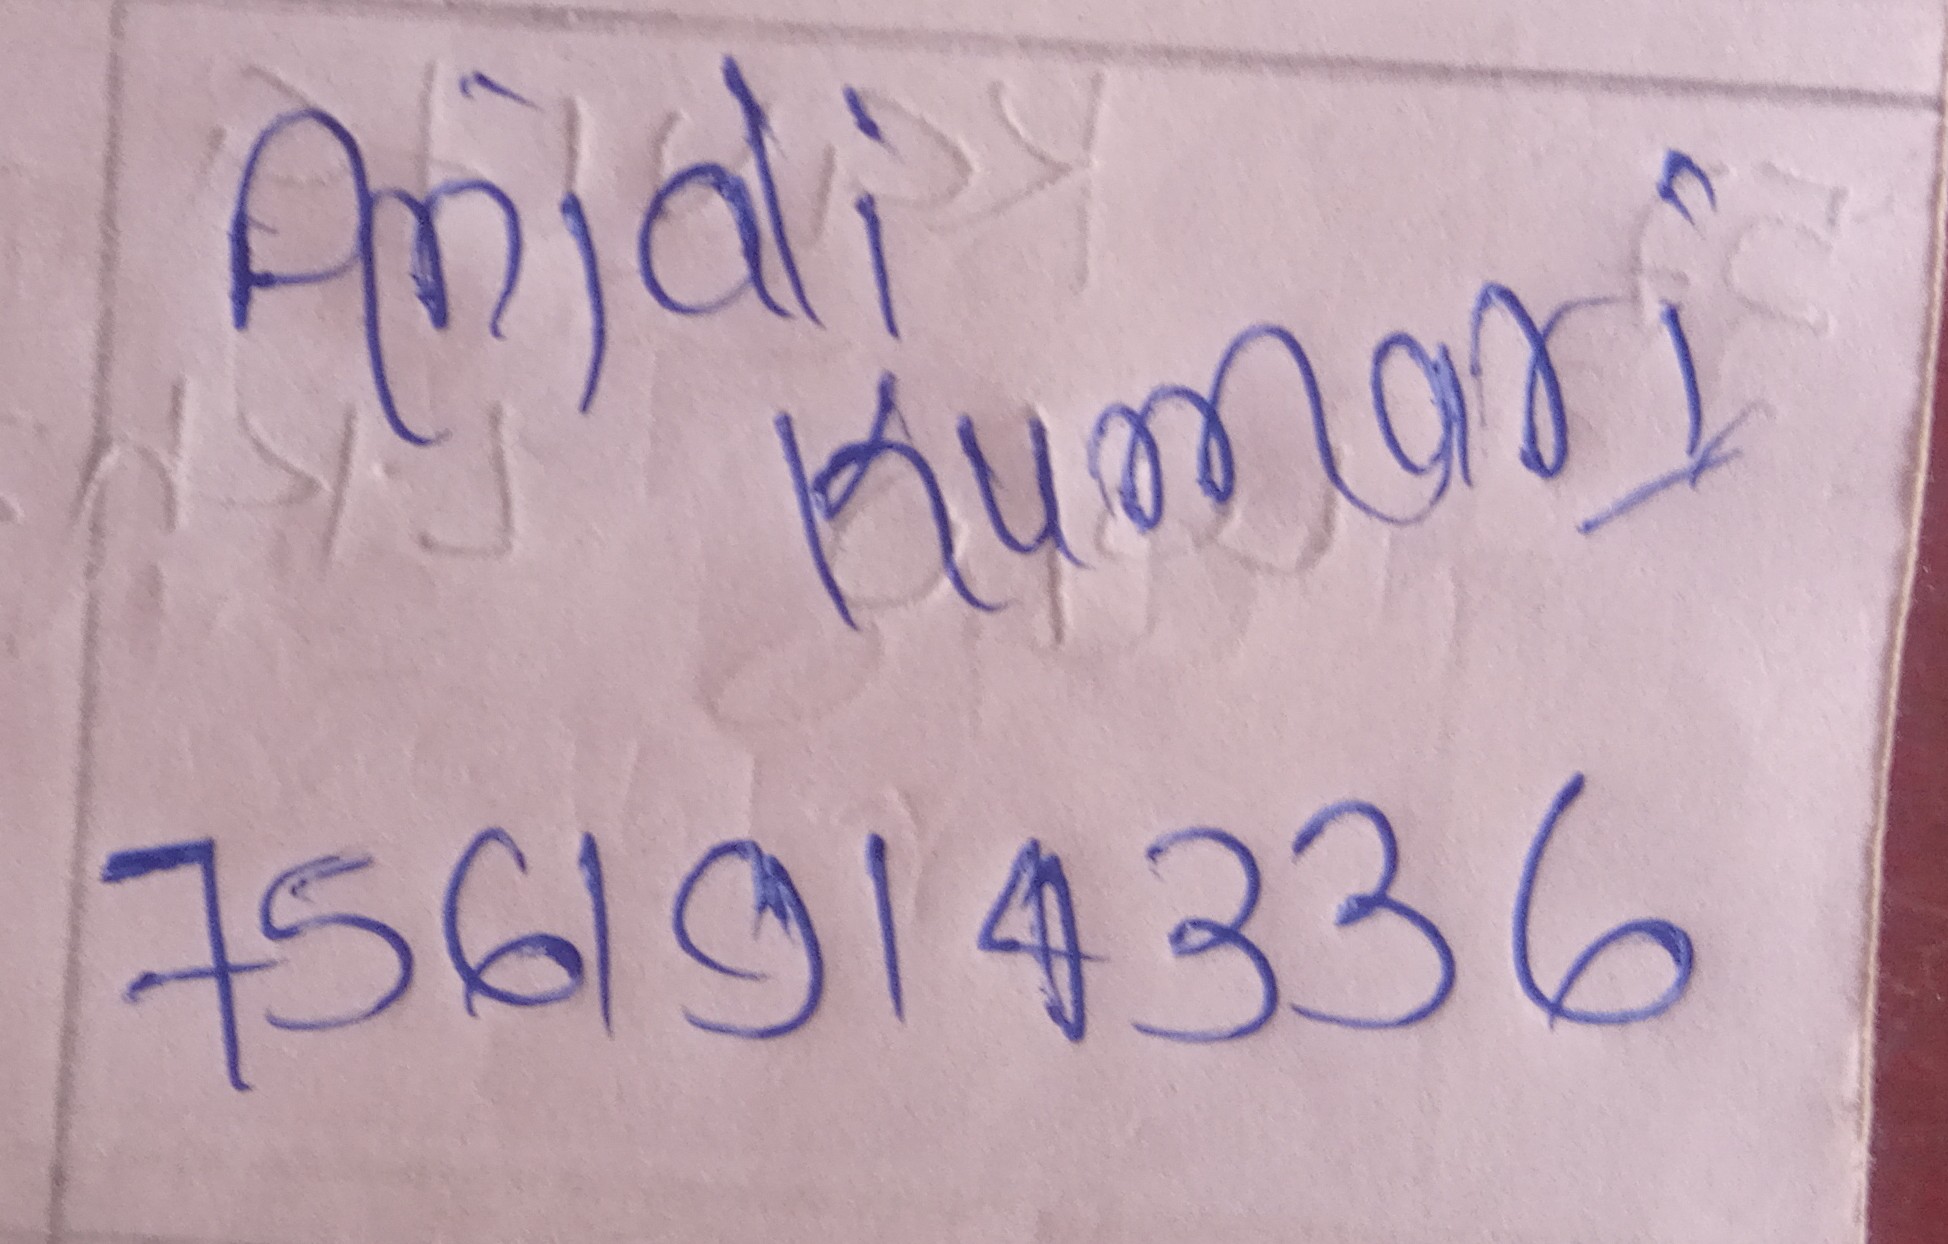 Anjali
Kumari
7561914336